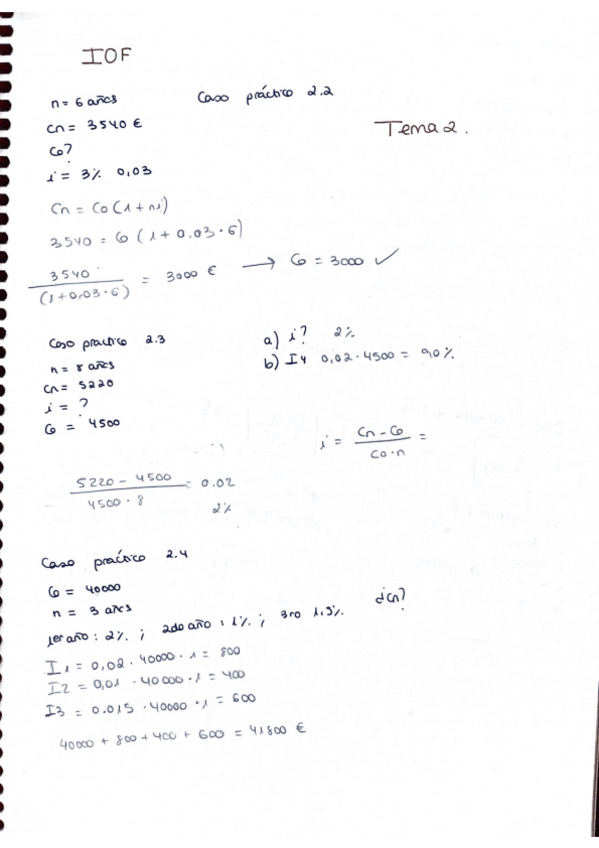 IOF
n = 6 años Caso práctico 2.2
Cn = 3540 € Tema 2.
Co?
i = 3% 0,03
Cn = Co (1 + ni)
3540 = Co (1 + 0.03 · 6)
3540 / (1+0,03·6) = 3000 € → Co = 3000 ✓
Caso practico 2.3 a) i? 2%
n = 8 años b) I4 0,02 · 4500 = 90%
Cn = 5220
i = ?
Co = 4500 i = Cn - Co / Co · n =
5220 - 4500 / 4500 · 8 = 0.02
2%
Caso práctico 2.4
Co = 40000
n = 3 años ¿Cn?
1er año : 2% ; 2do año : 1% ; 3ro 1.5%
I1 = 0,02 · 40000 · 1 = 800
I2 = 0,01 · 40000 · 1 = 400
I3 = 0.015 · 40000 · 1 = 600
40000 + 800 + 400 + 600 = 41800 €